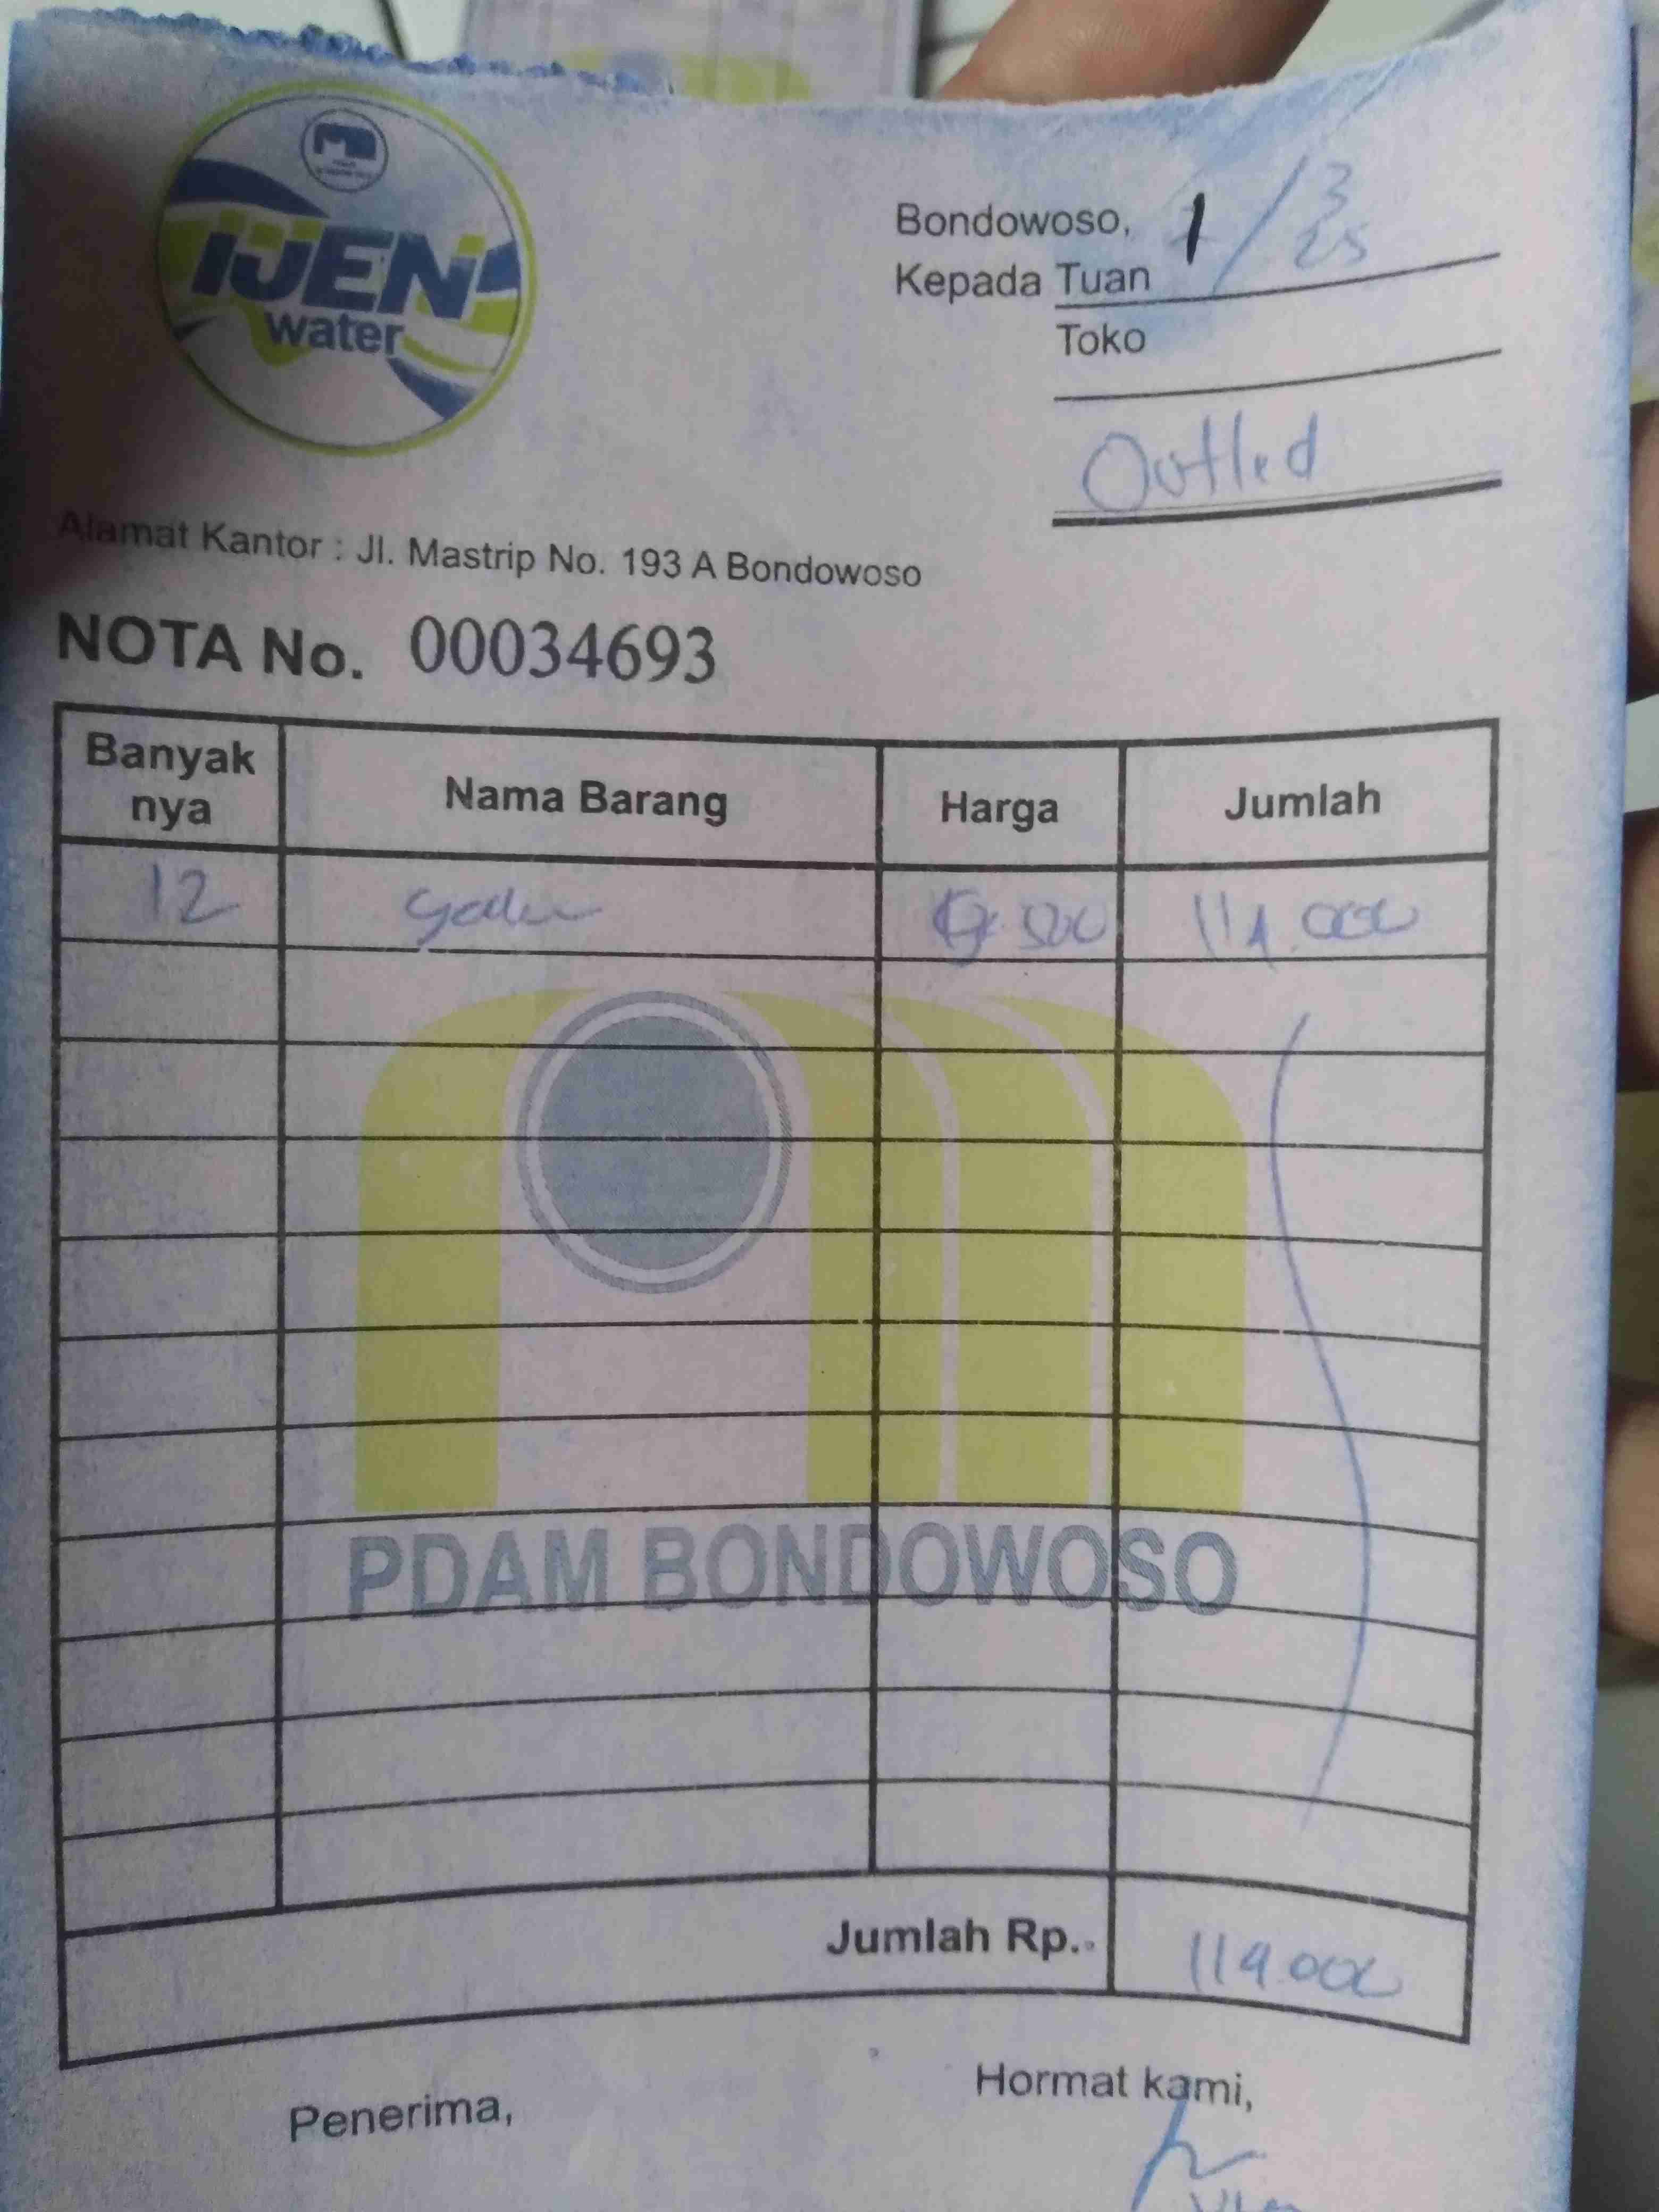 IJEN
water
Bondowoso, 1/3 25
Kepada Tuan
Toko
Outled
Alamat Kantor : Jl. Mastrip No. 193 A Bondowoso
NOTA No. 00034693
Banyak nya Nama Barang Harga Jumlah
12 .500 114.000
PDAM BONDOWOSO
Jumlah Rp. 114.000
Penerima, Hormat kami,